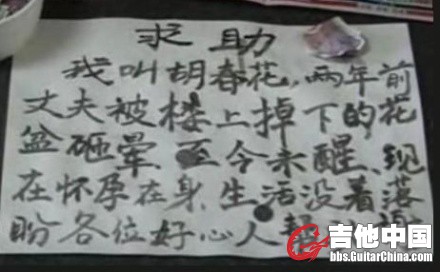 求助
我叫胡春花,两年前
丈夫被楼上掉下的花
盆砸晕 至今未醒、现
在怀孕在身、生活没着落
盼各位好心人帮
吉他中国
bbs.GuitarChina.com